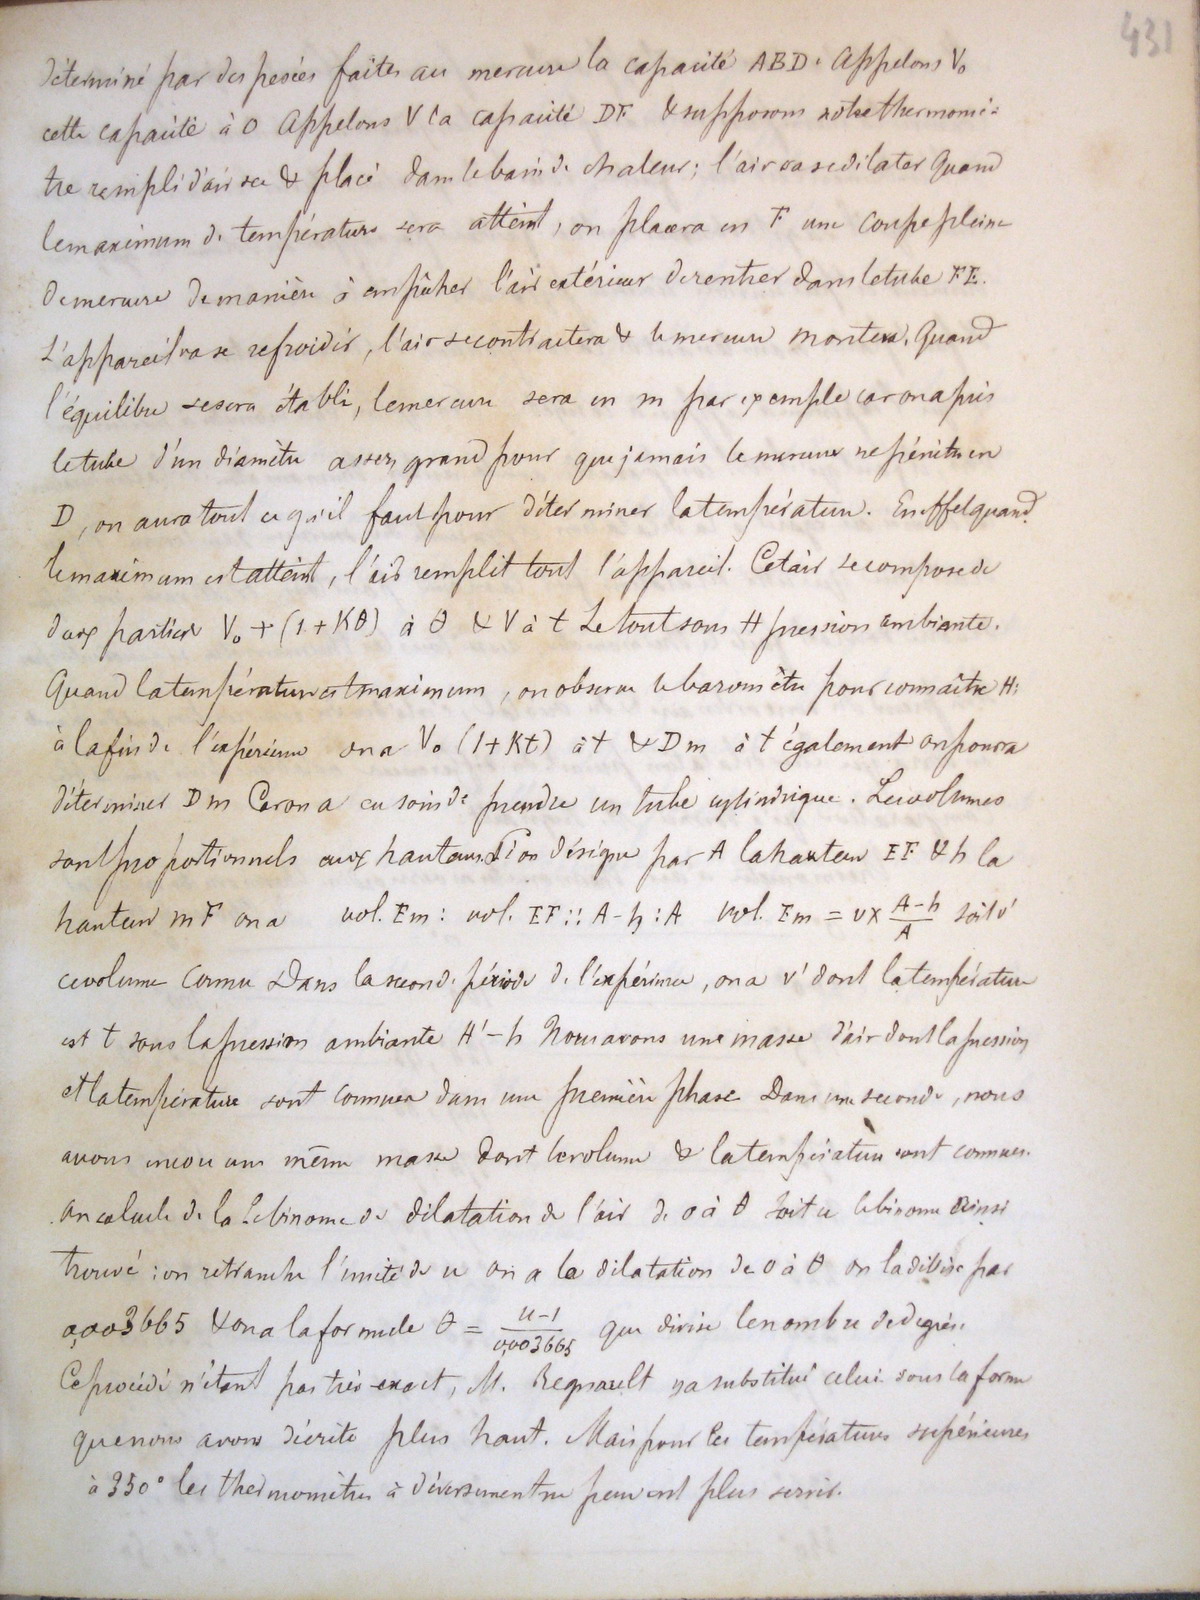 431
déterminé par des pesées faites au mercure la capacité ABD. Appelons V₀
cette capacité à 0 Appelons V la capacité DF & supposons notre thermomè-
tre rempli d'air sec & placé dans le bain de chaleur; l'air va se dilater Quand
le maximum de température sera atteint, on placera en F une coupe pleine
de mercure de manière à empêcher l'air extérieur de rentrer dans le tube FE.
L'appareil va se refroidir, l'air se contractera & le mercure montera. Quand
l'équilibre se sera établi, le mercure sera en m par exemple car on a pris
le tube d'un diamètre assez grand pour que jamais le mercure ne pénètre en
D, on aura tout ce qu'il faut pour déterminer la température. En effet quand
le maximum est atteint, l'air remplit tout l'appareil. Cet air se compose de
deux parties V₀ + (1+Kθ) à θ & V à t Le tout sous H pression ambiante.
Quand la température est maximum, on observe le baromètre pour connaître H:
à la fin de l'expérience on a V₀ (1+Kt) à t & Dm à t également on pourra
déterminer Dm Car on a eu soin de prendre un tube cylindrique. Les volumes
sont proportionnels aux hauteurs Si on désigne par A la hauteur EF & h la
hauteur mF on a vol. Em : vol. EF :: A-h : A vol. Em = v × (A-h)/A soit v'
ce volume connu Dans la seconde période de l'expérience, on a v' dont la température
est t sous la pression ambiante H'-h Nous avons une masse d'air dont la pression
et la température sont connues dans une première phase Dans une seconde, nous
avons encore une même masse dont le volume & la température sont connues.
On calcule de là le binome de dilatation de l'air de 0 à θ Soit u le binome ainsi
trouvé : on retranche l'unité de u on a la dilatation de 0 à θ on la divise par
0,003665 & on a la formule θ = (u-1)/0,003665 que divise le nombre de degrés.
Ce procédé n'étant pas très exact, M. Regnault y a substitué celui sous la forme
que nous avons décrite plus haut. Mais pour les températures supérieures
à 350° les thermomètres à déversement ne peuvent plus servir.